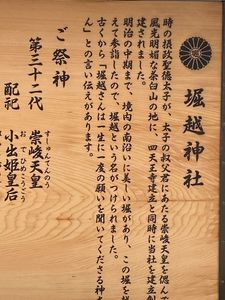 堀越神社
時の摂政聖徳太子が、太子の叔父君にあたる崇峻天皇を偲んで
風光明媚な茶臼山の地に、四天王寺建立と同時に当社を建立
建されました。
明治の中期まで、境内の南沿いに美しい堀があり、この堀を
えて参詣したので、堀越という名がつけられました。
古くから「堀越さんは一生に一度の願いを聞いてくださる神
ん」との言い伝えがあります。
ご祭神
第三十二代 崇峻天皇
すしゅんてんのう
配祀 小出姫皇后
おでひめこうごう